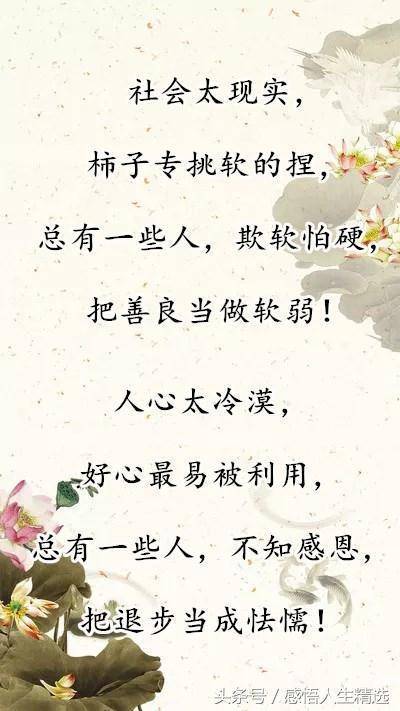 社会太现实，
柿子专挑软的捏，
总有一些人，欺软怕硬，
把善良当做软弱！
人心太冷漠，
好心最易被利用，
总有一些人，不知感恩，
把退步当成怯懦！
头条号 / 感悟人生精选